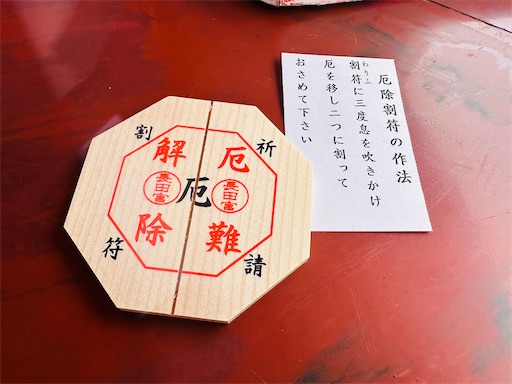 厄除割符の作法
割符に三度息を吹きかけ
わりふ
厄を移し二つに割って
おさめて下さい
祈
請
割
符
厄難
解除
厄
長田宮
長田宮